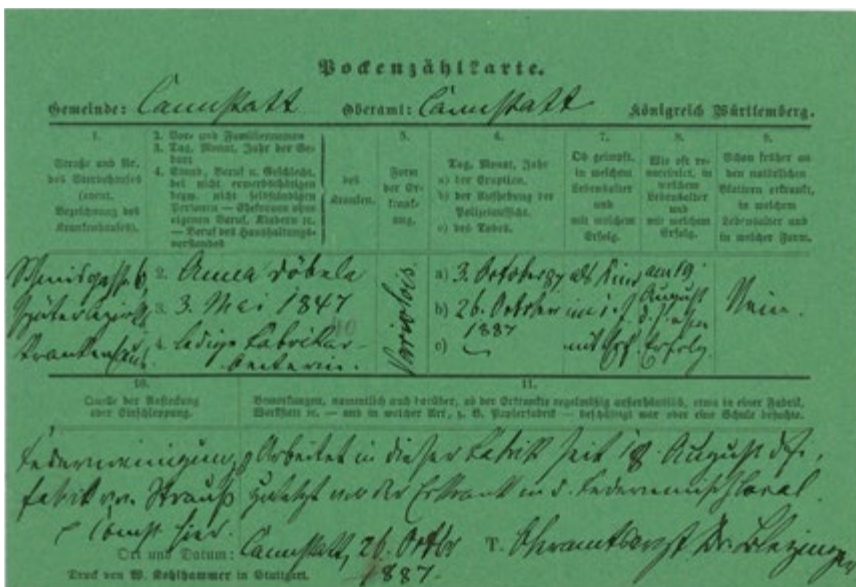 Pockenzählkarte.
Gemeinde: Cannstatt Oberamt: Cannstatt Königreich Württemberg.
1.
Straße und Nr. des Sterbehauses (event. Bezeichnung des Krankenhauses).
2. Vor- und Familiennamen
3. Tag, Monat, Jahr der Geburt
4. Stand, Beruf u. Geschlecht, bei nicht erwerbsthätigen bezw. nicht selbständigen Personen — Ehefrauen ohne eigenen Beruf, Kindern ec. — Beruf des Haushaltungsvorstandes
des Kranken.
5.
Form der Erkrankung.
6.
Tag, Monat, Jahr
a) der Eruption.
b) der Aufhebung der Polizeiaufsicht.
c) des Todes.
7.
Ob geimpft, in welchem Lebensalter und mit welchem Erfolg.
8.
Wie oft revaccinirt, in welchem Lebensalter und mit welchem Erfolg.
9.
Schon früher an den natürlichen Blattern erkrankt, in welchem Lebensalter und in welcher Form.
Schmidgasse 6,
später Bezirks
Krankenhaus
2. Anna Döbele
3. 3. Mai 1847
4. ledige Fabrikar-
beiterin.
Variolois.
a) 3. Oktober 87
b) 26. Oktober
1887
c)
als Kind
im 1. J.
mit Erf.
am 19.
August
d. J. ohne
Erfolg.
Nein.
10.
Quelle der Ansteckung oder Einschleppung.
11.
Bemerkungen, namentlich auch darüber, ob der Erkrankte regelmäßig außerhäuslich, etwa in einer Fabrik, Werkstatt ec. — und in welcher Art, z. B. Papierfabrik — beschäftigt war oder eine Schule besuchte.
Federnreinigungs
fabrik von Strauß
hier.
Arbeitet in dieser Fabrik seit 18. August ds. J.,
zuletzt vor der Erkrank. im
Ort und Datum: Cannstatt, 26. Octbr
1887.
T. Oberamtsarzt Dr. Blezinger
Druck von W. Kohlhammer in Stuttgart.